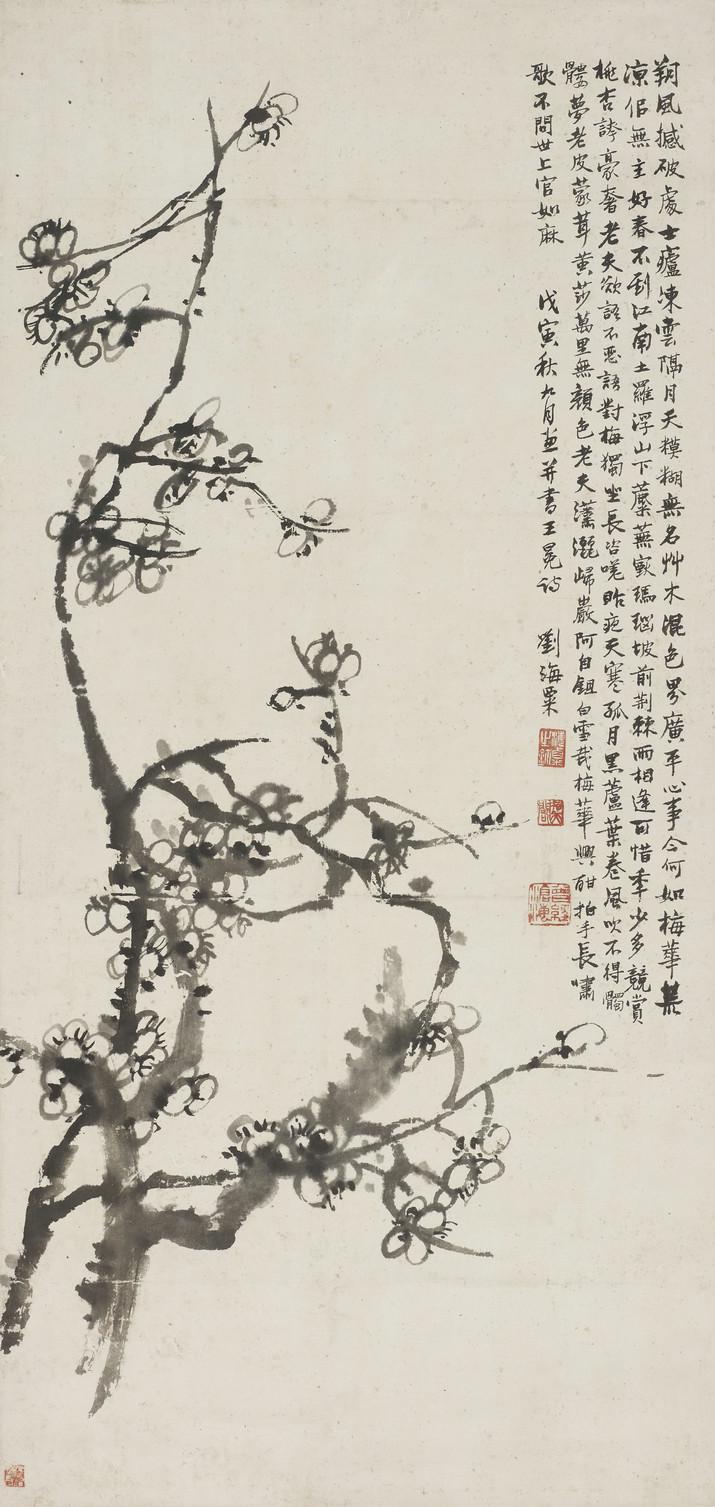 朔風撼破處士廬凍雲隔月天糢糊無名艸木混色界廣平心事今何如梅華荒
涼佀無主好春不到江南土羅浮山下蘪蕪㝡瑪瑙坡前荆棘雨相逢可惜年少多競賞
桃杏誇豪奢老夫欲語不忍語對梅獨坐長咨嗟昨夜天寒孤月黑蘆葉卷風吹不得髑
髏夢老皮蒙茸黄莎萬里無顏色老夫瀟灑歸巖阿自鉏白雪栽梅華興酣拍手長嘯
歌不問世上官如麻 戊寅秋九月画并書王冕詩 劉海粟
海粟之鉨
曾經滄海